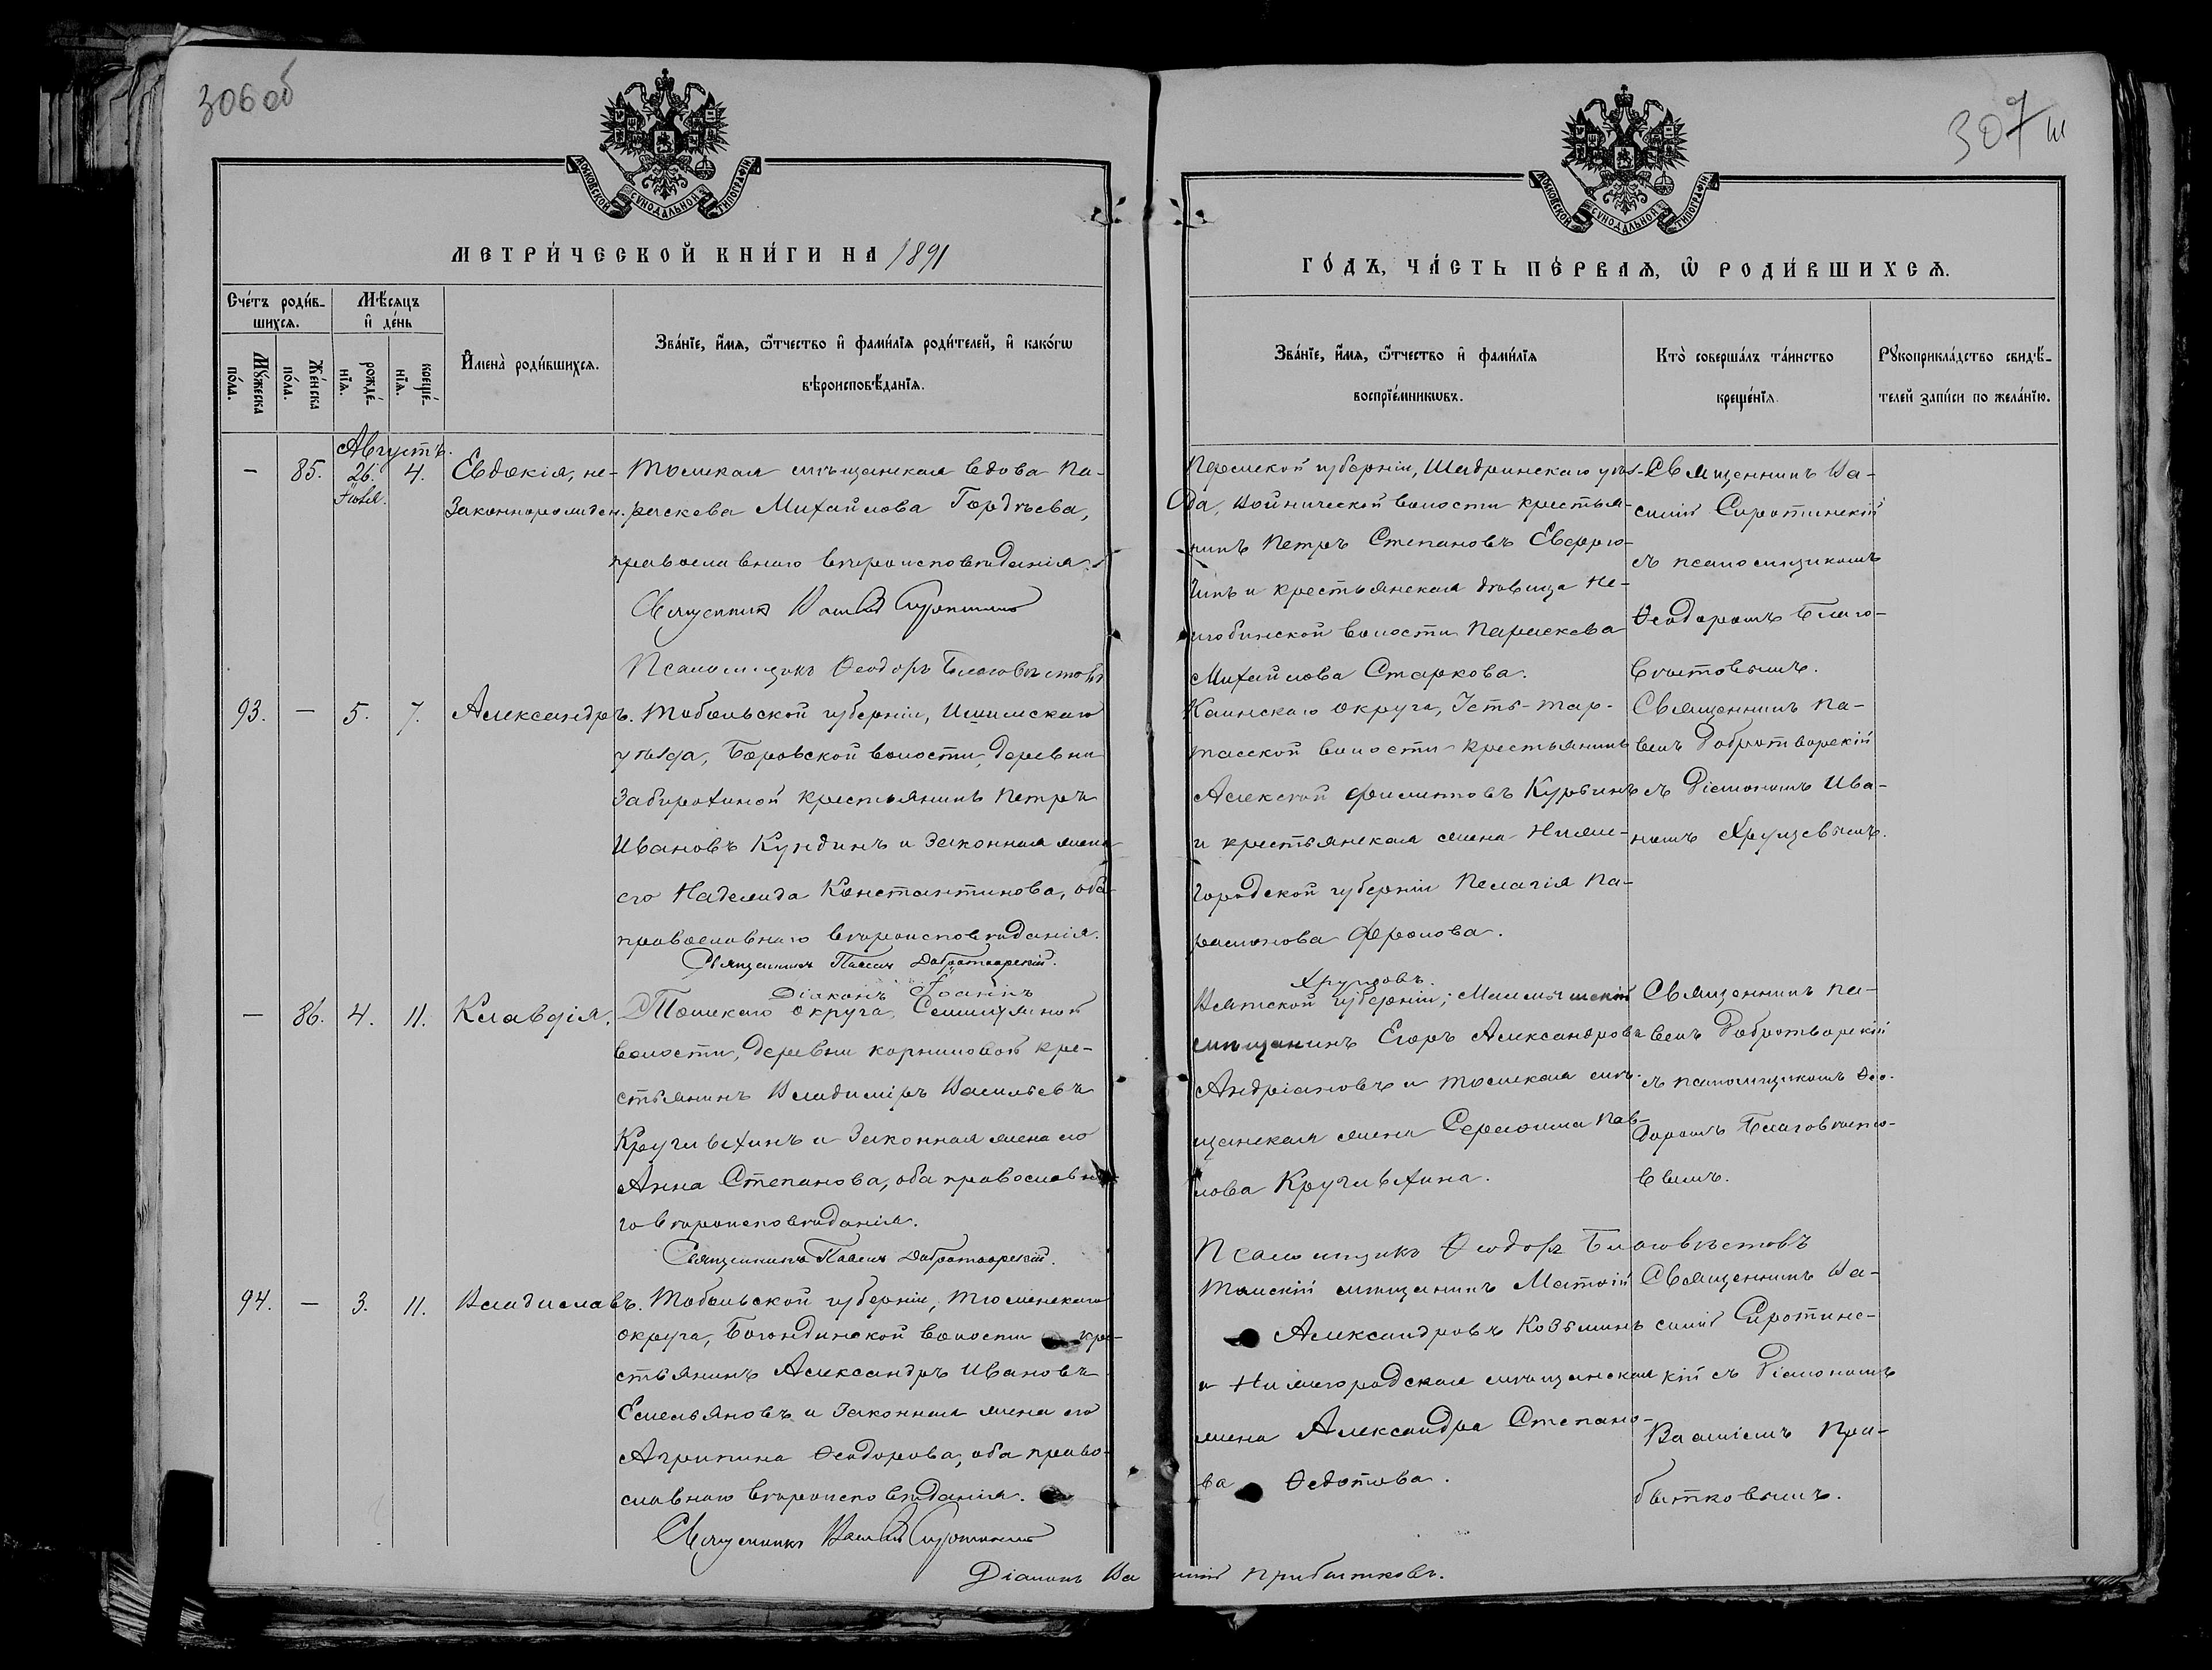 306 об
МОСКОВСКОЙ СѴНОДАЛЬНОЙ ТИПОГРАФІИ
МЕТРИ́ЧЕСКОЙ КНИ́ГИ НА 1891
Сче́тъ роди́в-
шихсѧ.
Мѣ́сѧцъ
и҆ де́нь
Мꙋ́жеска
по́ла.
Же́нска
по́ла.
рожде́-
нїѧ.
креще́-
нїѧ.
И҆мена̀ роди́вшихсѧ.
Зва́нїе, и҆́мѧ, ѻ҆́тчество и҆ фами́лїѧ роди́телей, и҆ како́гѡ
вѣроисповѣ́данїѧ.
Августъ.
— 85. 26. 4. Евдокія, не- Томская мѣщанская вдова Па-
Іюля. Законнорожден. раскева Михайлова Гордѣева,
православнаго вѣроисповѣданія.
Священникъ Василій Сиротинскій
Псаломщикъ Ѳеодоръ Благовѣстовъ
93. — 5. 7. Александръ. Тобольской губерніи, Ишимскаго
уѣзда, Боровской волости, деревни
крестьянинъ Петръ
Ивановъ Кундинъ и законная жена
его Надежда Константинова, оба
православнаго вѣроисповѣданія.
Священникъ Павелъ Добротворскій.
Діаконъ Іоаннъ
— 86. 4. 11. Клавдія. Томскаго округа, Семилужной
волости, деревни Корниловой кре-
стьянинъ Владиміръ Васильевъ
Кругляхинъ и законная жена его
Анна Степанова, оба православна-
го вѣроисповѣданія.
Священникъ Павелъ Добротворскій.
94. — 3. 11. Владиславъ. Тобольской губерніи, Тюменскаго
округа, Богандинской волости кре-
стьянинъ Александръ Ивановъ
Емельяновъ и законная жена его
Агрипина Ѳеодорова, оба право-
славнаго вѣроисповѣданія.
Священникъ Василій Сиротинскій
Діаконъ Ва
307
МОСКОВСКОЙ СѴНОДАЛЬНОЙ ТИПОГРАФІИ
ГО́ДЪ, ЧА́СТЬ ПЕ́РВАѦ, Ѡ҆ РОДИ́ВШИХСѦ.
Зва́нїе, и҆́мѧ, ѻ҆́тчество и҆ фами́лїѧ
воспрїе́мникѡвъ.
Кто̀ соверша́лъ та́инство
креще́нїѧ.
Рꙋкоприкла́дство свидѣ́-
телей за́писи по жела́нїю.
Пермской губерніи, Шадринскаго уѣз-
да, волости крестья-
нинъ Петръ Степановъ
и крестьянская дѣвица Не-
любинской волости Параскева
Михайлова Старкова.
Священникъ Ва-
силій Сиротинскій
съ псаломщикомъ
Ѳеодоромъ Благо-
вѣстовымъ.
Каинскаго округа, Усть-Тар-
тасской волости крестьянинъ
Алексѣй Филипповъ Курбинъ
и крестьянская жена Ниже-
городской губерніи Пелагія Па-
рамонова Фролова.
Священникъ Па-
велъ Добротворскій
съ Діакономъ Ива-
номъ Хрущевымъ.
Хрущовъ.
Вятской губерніи, Малмыжскій
мѣщанинъ Егоръ Александровъ
Андріановъ и томская мѣ-
щанская жена Серафима Пав-
лова Кругляхина.
Священникъ Па-
велъ Добротворскій
съ псаломщикомъ Ѳео-
доромъ Благовѣсто-
вымъ.
Псаломщикъ Ѳеодоръ Благовѣстовъ
Томскій мѣщанинъ Матвій
Александровъ Козьминъ
и Нижегородская мѣщанская
жена Александра Степано-
ва Ѳедотова.
Священникъ Ва-
силій Сиротинс-
кій съ Діакономъ
Василіемъ При-
бытковымъ.
силій Прибытковъ.